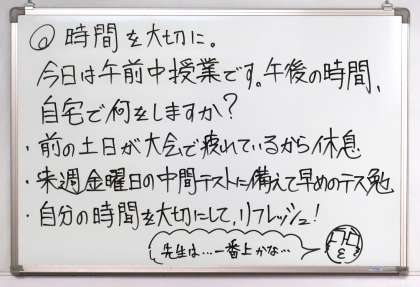 ◎時間を大切に。
今日は午前中授業です。午後の時間、
自宅で何をしますか?
・前の土日が大会で疲れているから休息
・来週金曜日の中間テストに備えて早めのテス勉
・自分の時間を大切にして,リフレッシュ!
先生は…一番上かな…